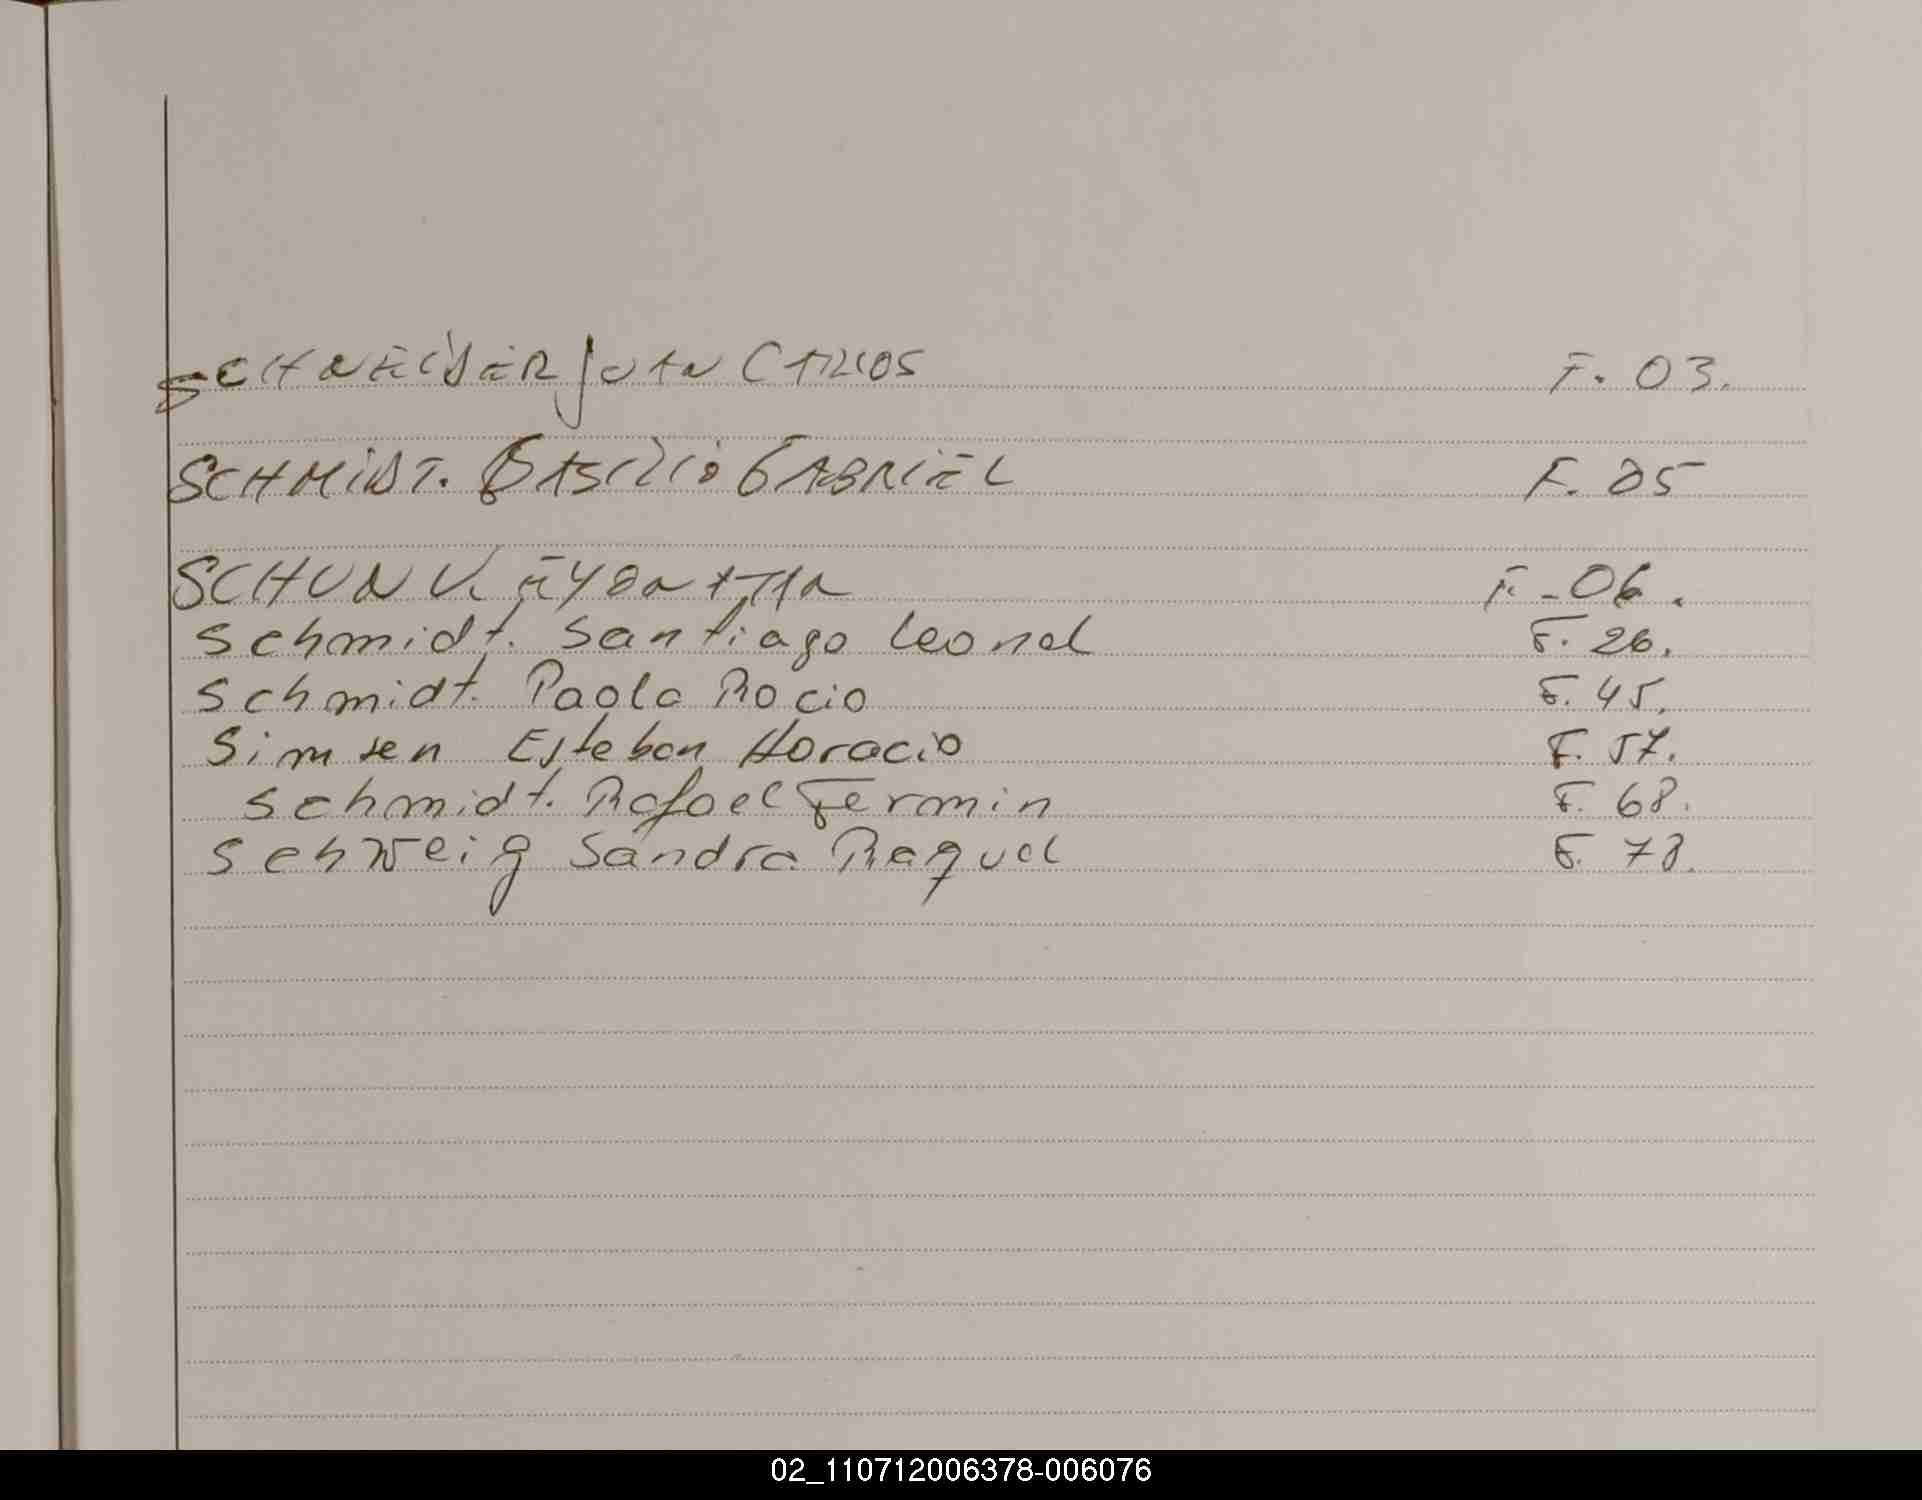 SCHNEIDER JUAN CARLOS F. 03.
SCHMIDT. BASILIO GABRIEL F. 05
SCHUNK F - 06.
Schmidt. Santiago Leonel F. 26.
Schmidt. Paola Rocio F. 45.
Simsen Esteban Horacio F. 57.
Schmidt. Rafael Fermin F. 68.
Schweig Sandra Raquel F. 78.
02_110712006378-006076